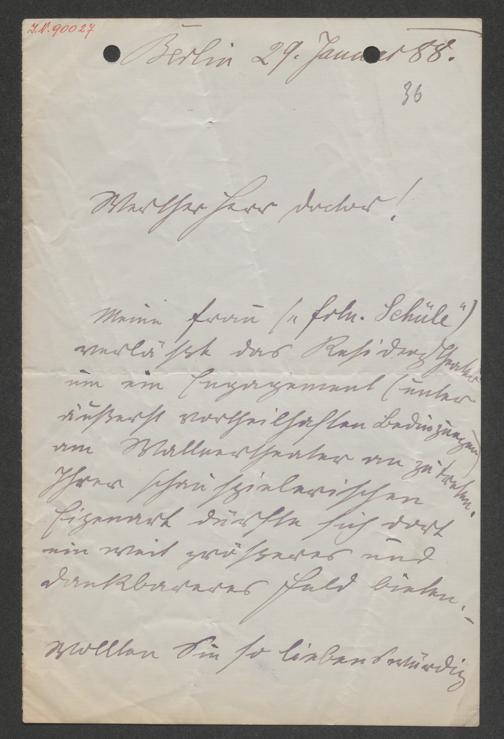 I.N. 90027
Berlin 29. Januar 88.
36
Werther Herr Doctor!
Meine Frau („Frln. Schüle“)
verläßt das Residenztheater
um ein Engagement (unter
äußerst vortheilhaften Bedingungen)
am Wallnertheater anzutreten.
Ihrer schauspielerischen
Eigenart dürfte sich dort
ein weit größeres und
dankbareres Feld bieten. –
Wollten Sie so liebenswürdig